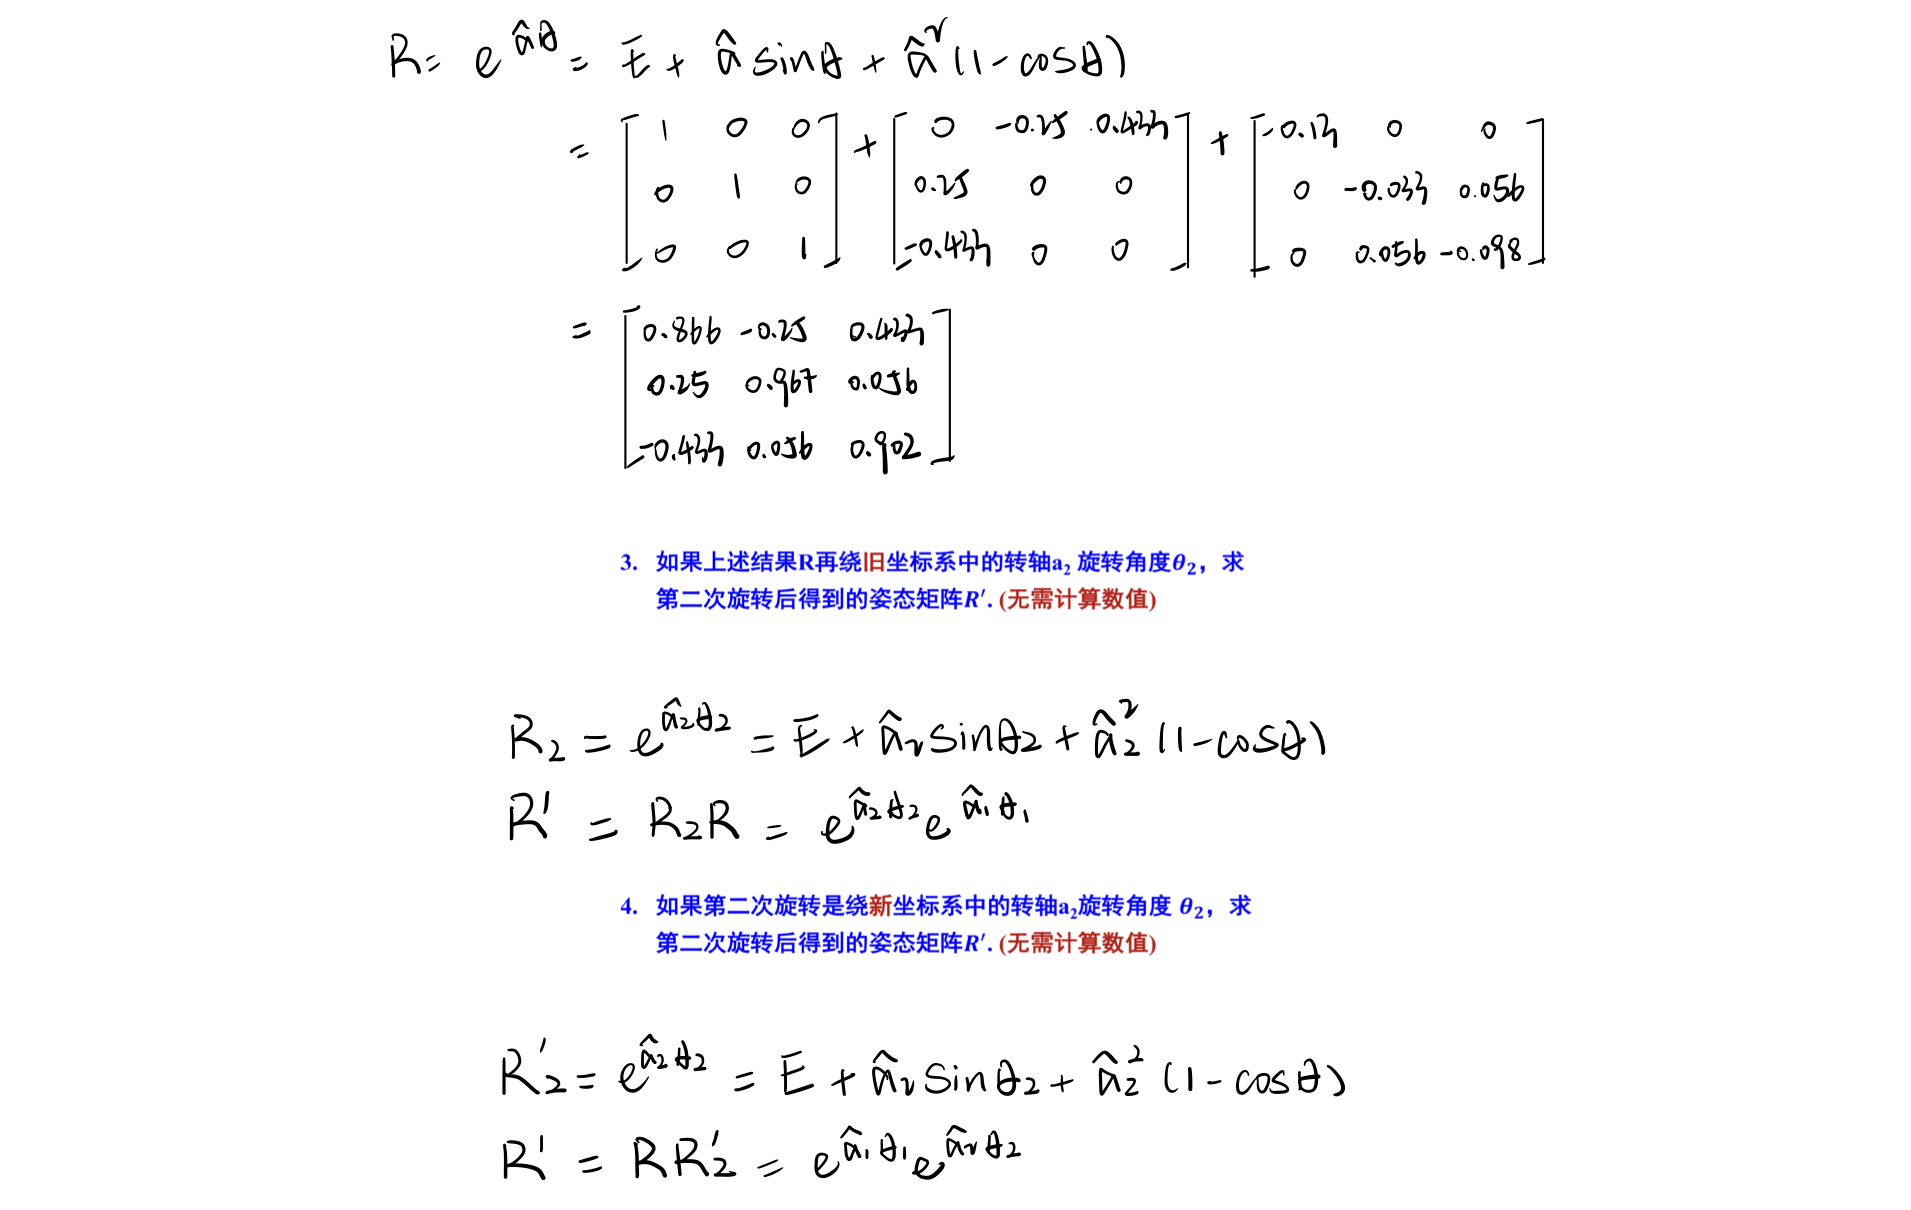 R = e^{âθ} = E + â sinθ + â² (1 - cosθ)
= [1 0 0; 0 1 0; 0 0 1] + [0 -0.25 0.433; 0.25 0 0; -0.433 0 0] + [-0.13 0 0; 0 -0.033 0.056; 0 0.056 -0.098]
= [0.866 -0.25 0.433; 0.25 0.967 0.056; -0.433 0.056 0.902]
3. 如果上述结果R再绕旧坐标系中的转轴a₂ 旋转角度θ₂，求
第二次旋转后得到的姿态矩阵R′. (无需计算数值)
R₂ = e^{â₂θ₂} = E + â₂ sinθ₂ + â₂² (1-cosθ)
R' = R₂R = e^{â₂θ₂} e^{â₁θ₁}
4. 如果第二次旋转是绕新坐标系中的转轴a₂旋转角度 θ₂，求
第二次旋转后得到的姿态矩阵R′. (无需计算数值)
R₂' = e^{â₂θ₂} = E + â₂ sinθ₂ + â₂² (1-cosθ)
R' = RR₂' = e^{â₁θ₁} e^{â₂θ₂}